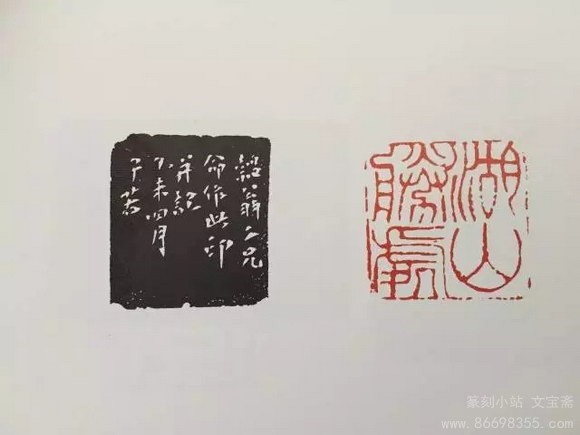 湖山
勝處
翁兄
命作此印
并記
乙未四月
篆刻小站 文宝斋
www.86698355.com